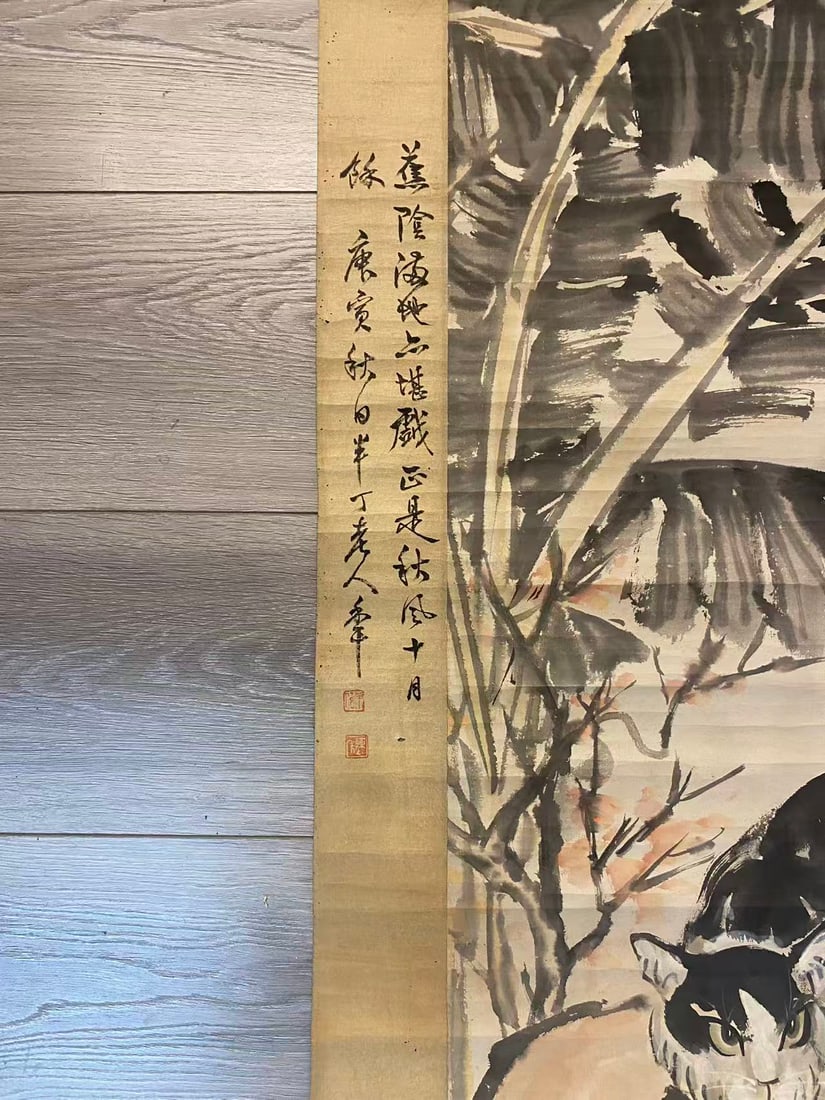 蕉陰滿地亦堪戲正是秋風十月
餘 庚寅秋日半丁老人年